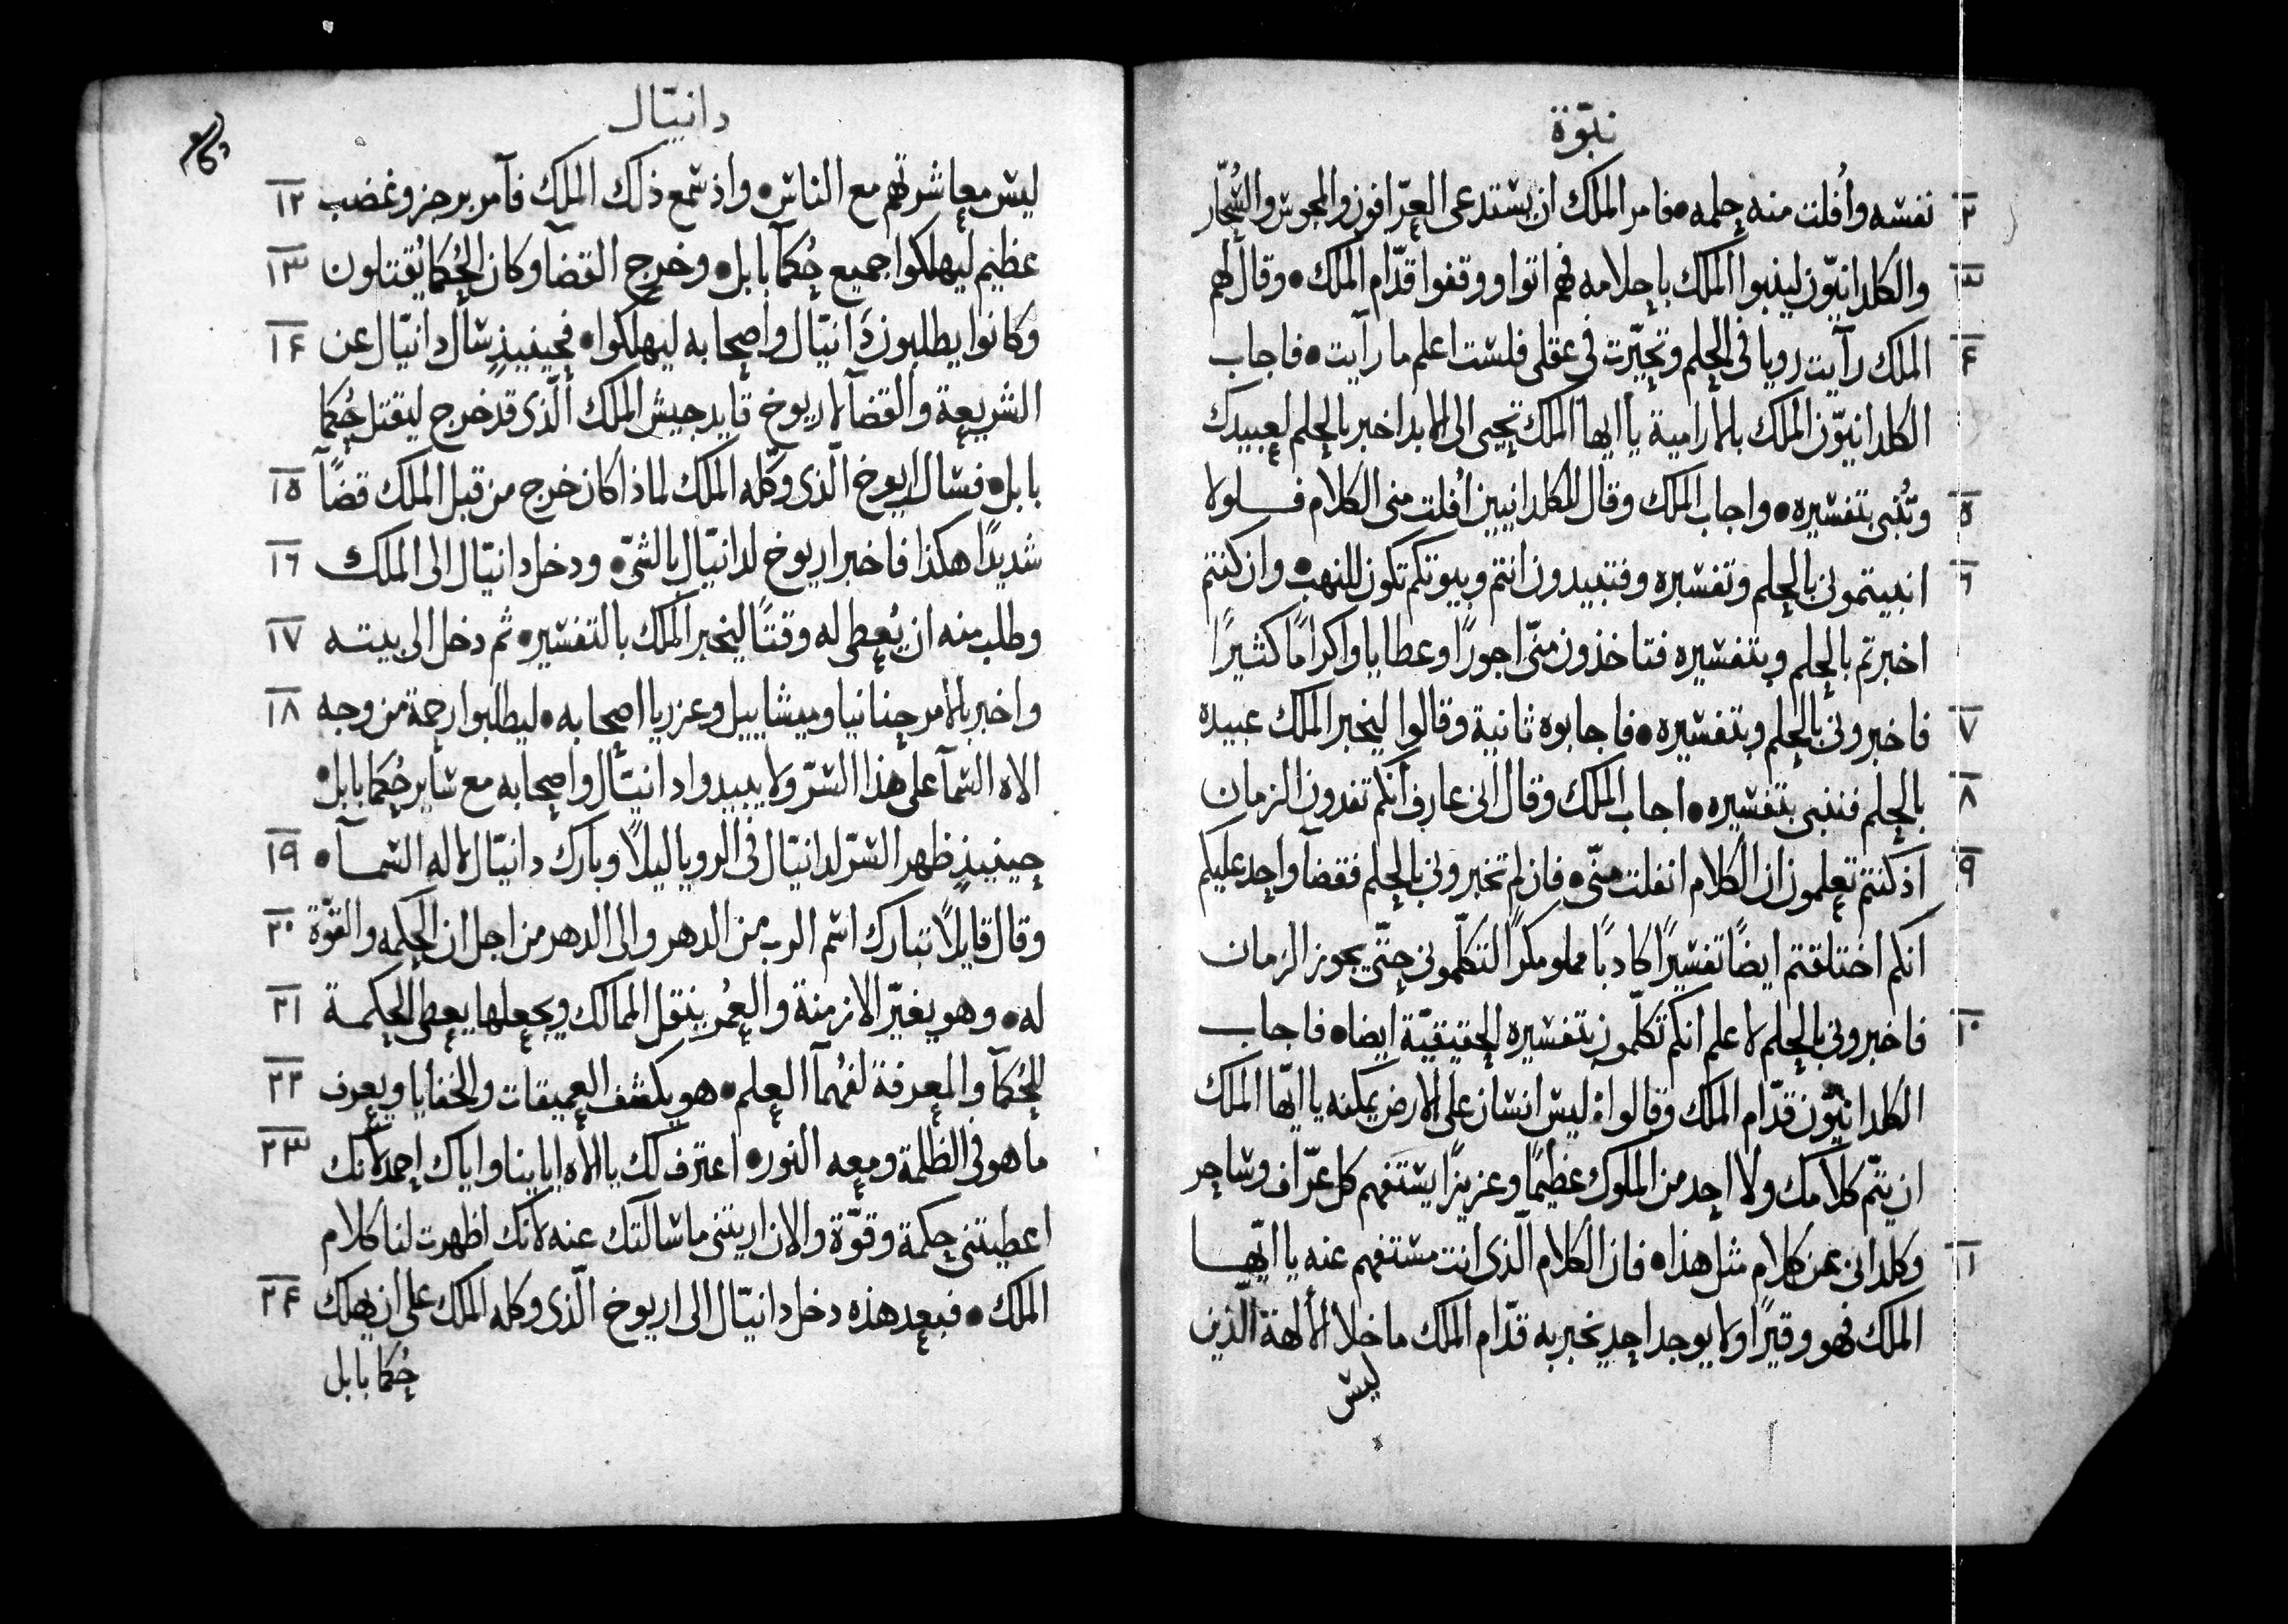 نبوّة
٢ نفسه وأُفلت منه حلمه • فامر الملك ان يستدعى العرّافون والمجوس والسُحّار
٣ والكلدانيّون لينبوا الملك باحلامه فهم اتوا ووقفوا قدّام الملك • وقال لهم
٤ الملك رآيت رويا في الحلم وتحيّرت في عقلى فلست اعلم ما رآيت • فاجاب
الكلدانيّون الملك بالارامية يا ايها الملك تحيى الى الابد اخبر بالحلم لعبيدك
٥ وتُنبى بتفسيره • واجاب الملك وقال للكلدانيين أُفلت منى الكلام فلولا
٦ انبيتمونى بالحلم وتفسيره وفتبيدون انتم وبيوتكم تكون للنهب • وان كنتم
اخبرتم بالحلم وبتفسيره فتاخذون منّى اجورًا وعطايا واكرامًا كثيرًا
٧ فاخبرونى بالحلم وبتفسيره • فاجابوه ثانية وقالوا ليخبر الملك عبيده
٨ بالحلم فننبى بتفسيره • اجاب الملك وقال انى عارف أنكم تفدون الزمان
٩ اذ كنتم تعلمون ان الكلام انفلت منّى • فان لم تخبرونى بالحلم فقضآ واحد عليكم
انكم اختلقتم ايضًا تفسيرًا كادبًا مملو مكرًا لتكلّمونى حتّى يجوز الزمان
١٠ فاخبرونى بالحلم لاعلم أنكم تكلّمون بتفسيره الحقيقيّة ايضا • فاجاب
الكلدانيّون قدّام الملك وقالوا • ليس انسان على الارض يمكنه يا ايّها الملك
ان يتّم كلامك ولا احد من الملوك عظيمًا وعزيزًا يستفهم كل عرّاف وساحر
١١ وكلدانى عن كلام مثل هذا • فان الكلام الّذى انت مستفهم عنه يا ايّها
الملك فهو وقيرًا ولا يوجد احد يخبر به قدّام الملك ما خلا الألهة الّذين
ليس
دانيّال
ليس معاشرتهم مع الناس • واذ سمع ذلك الملك فآمر برجز وغضب ١٢
عظيم ليهلكوا جميع حُكمآ بابل • وخرج القضآ وكان الحُكما يُقتلون ١٣
وكانوا يطلبون دَانيّال واصحابه ليهلكوا • فحينيذٍ سأل دانيّال عن ١٤
الشريعة والقضآ لاريوخ قايد جيش الملك الّذى قد خرج ليقتل حُكما
بابل • فسال اريوخ الّذى وكّله الملك لماذا كان خرج من قبل الملك قضًآ ١٥
شديدًا هكذا فاخبر اريوخ لدانيّال بالشىّ • ودخل دانيّال الى الملك ١٦
وطلب منه ان يُعطى له وقتًا ليخبر الملك بالتفسير • ثم دخل الى بيته ١٧
واخبر بالامر حنانيا وميشاييل وعزريا اصحابه • ليطلبوا رحمة من وجه ١٨
الاه السمآ على هذا السّر ولا يبيدوا دانيّال واصحابه مع سأير حُكما بابل •
حينيذٍ ظهر السّر لدانيّال في الرويا ليلًا وبارك دانيّال لاله السمآ • ١٩
وقال قايلًا تبارك اسم الرب من الدهر والى الدهر من اجل ان الحكمه والقوّة ٢٠
له • وهو يغيّر الازمنة والعمُر ينقل الممالك ويجعلها يعطى الحكمة ٢١
للحُكمآ والمعرفة لفُهمآ العلم • هو يكشف العميقات والخفايا ويعرف ٢٢
ما هو في الظلمة ومعه النور • اعترف لك يا الاه ابايينا واياك احمد لانك ٢٣
اعطيتنى حكمة وقوّة والان اريتنى ما سالتك عنه لانك اظهرت لنا كلام
الملك • فبعد هذه دخل دانيّال الى اريوخ الّذى وكله الملك على ان يهلك ٢٤
حُكما بابل